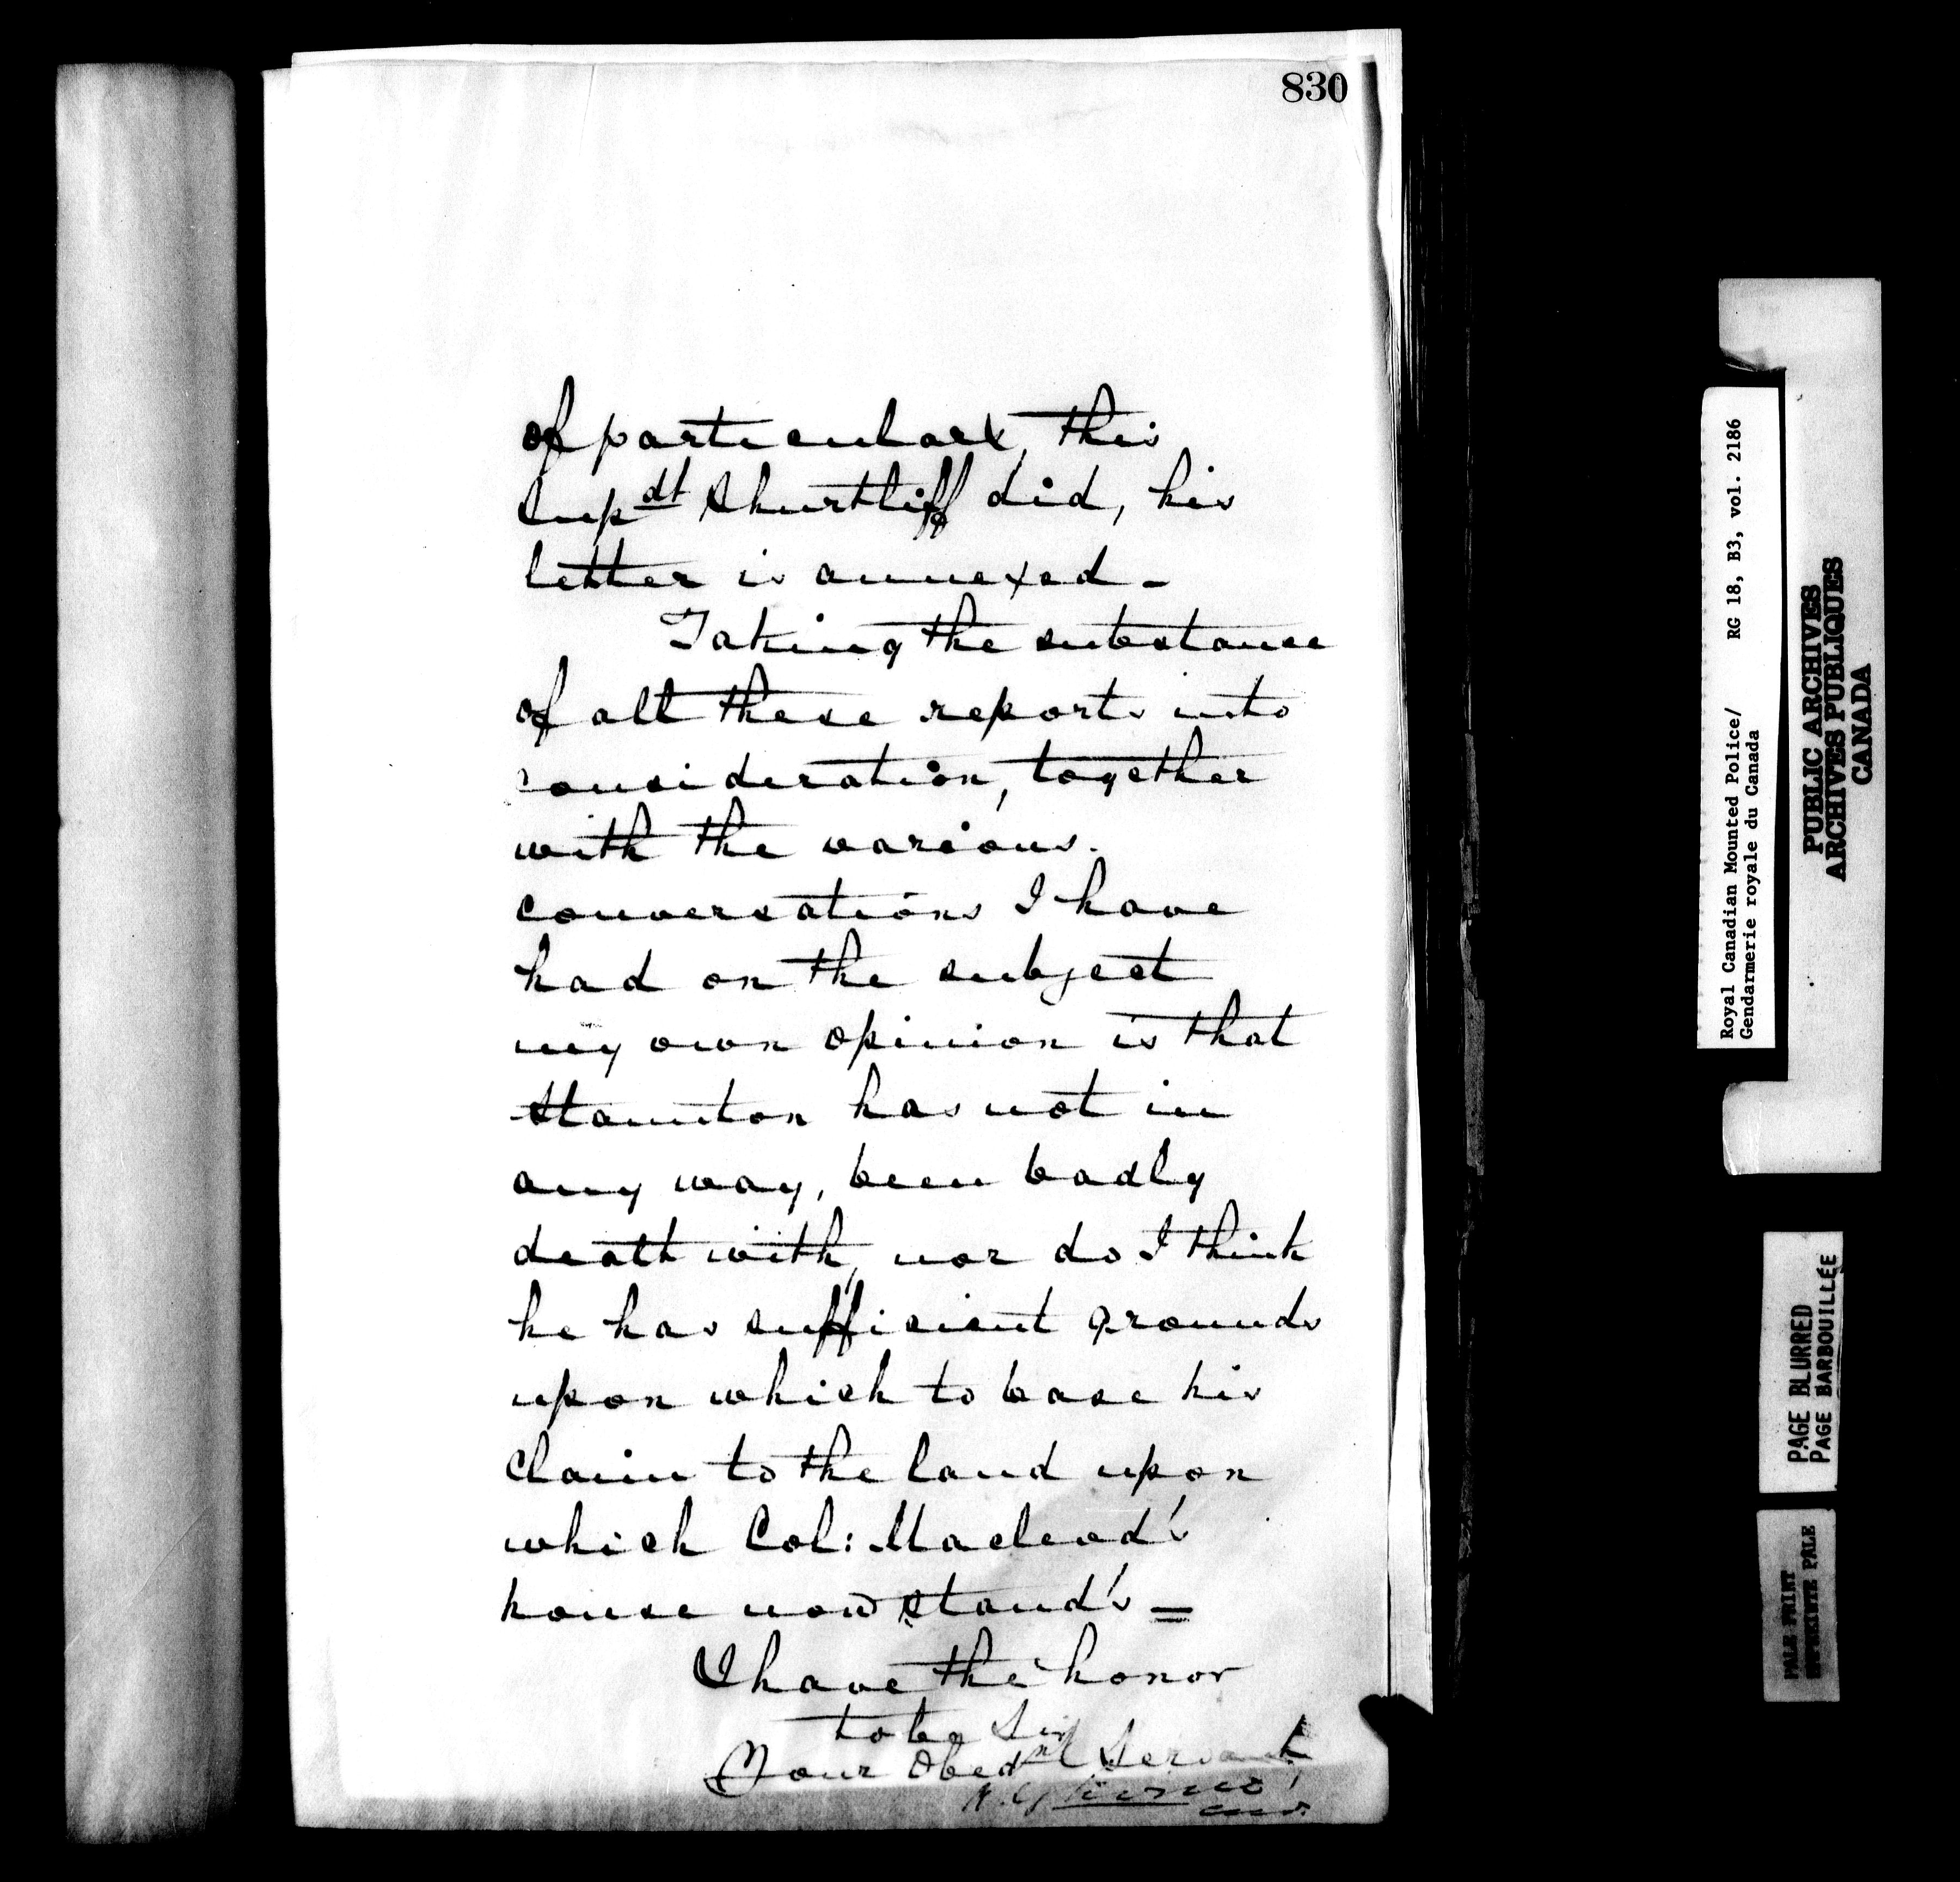 830
of particulars, this
Supdt Shurtliff did, his
letter is annexed -
Taking the substance
of all these reports into
consideration, together
with the various.
conversations I have
had on the subject
my own opinion is that
Staunton has not in
any way, been badly
dealt with, nor do I think
he has sufficient grounds
upon which to base his
claim to the land upon
which Col: Macleod's
house now stand's =
I have the honor
to be Sir
Your Obednt Servant
Royal Canadian Mounted Police/ RG 18, B3, vol. 2186
Gendarmerie royale du Canada
PUBLIC ARCHIVES
ARCHIVES PUBLIQUES
CANADA
PAGE BLURRED
PAGE BARBOUILLÉE
PALE PRINT
PALE